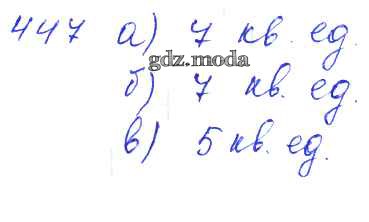 447 а) 7 кв. ед.
gdz.moda
б) 7 кв. ед.
в) 5 кв. ед.